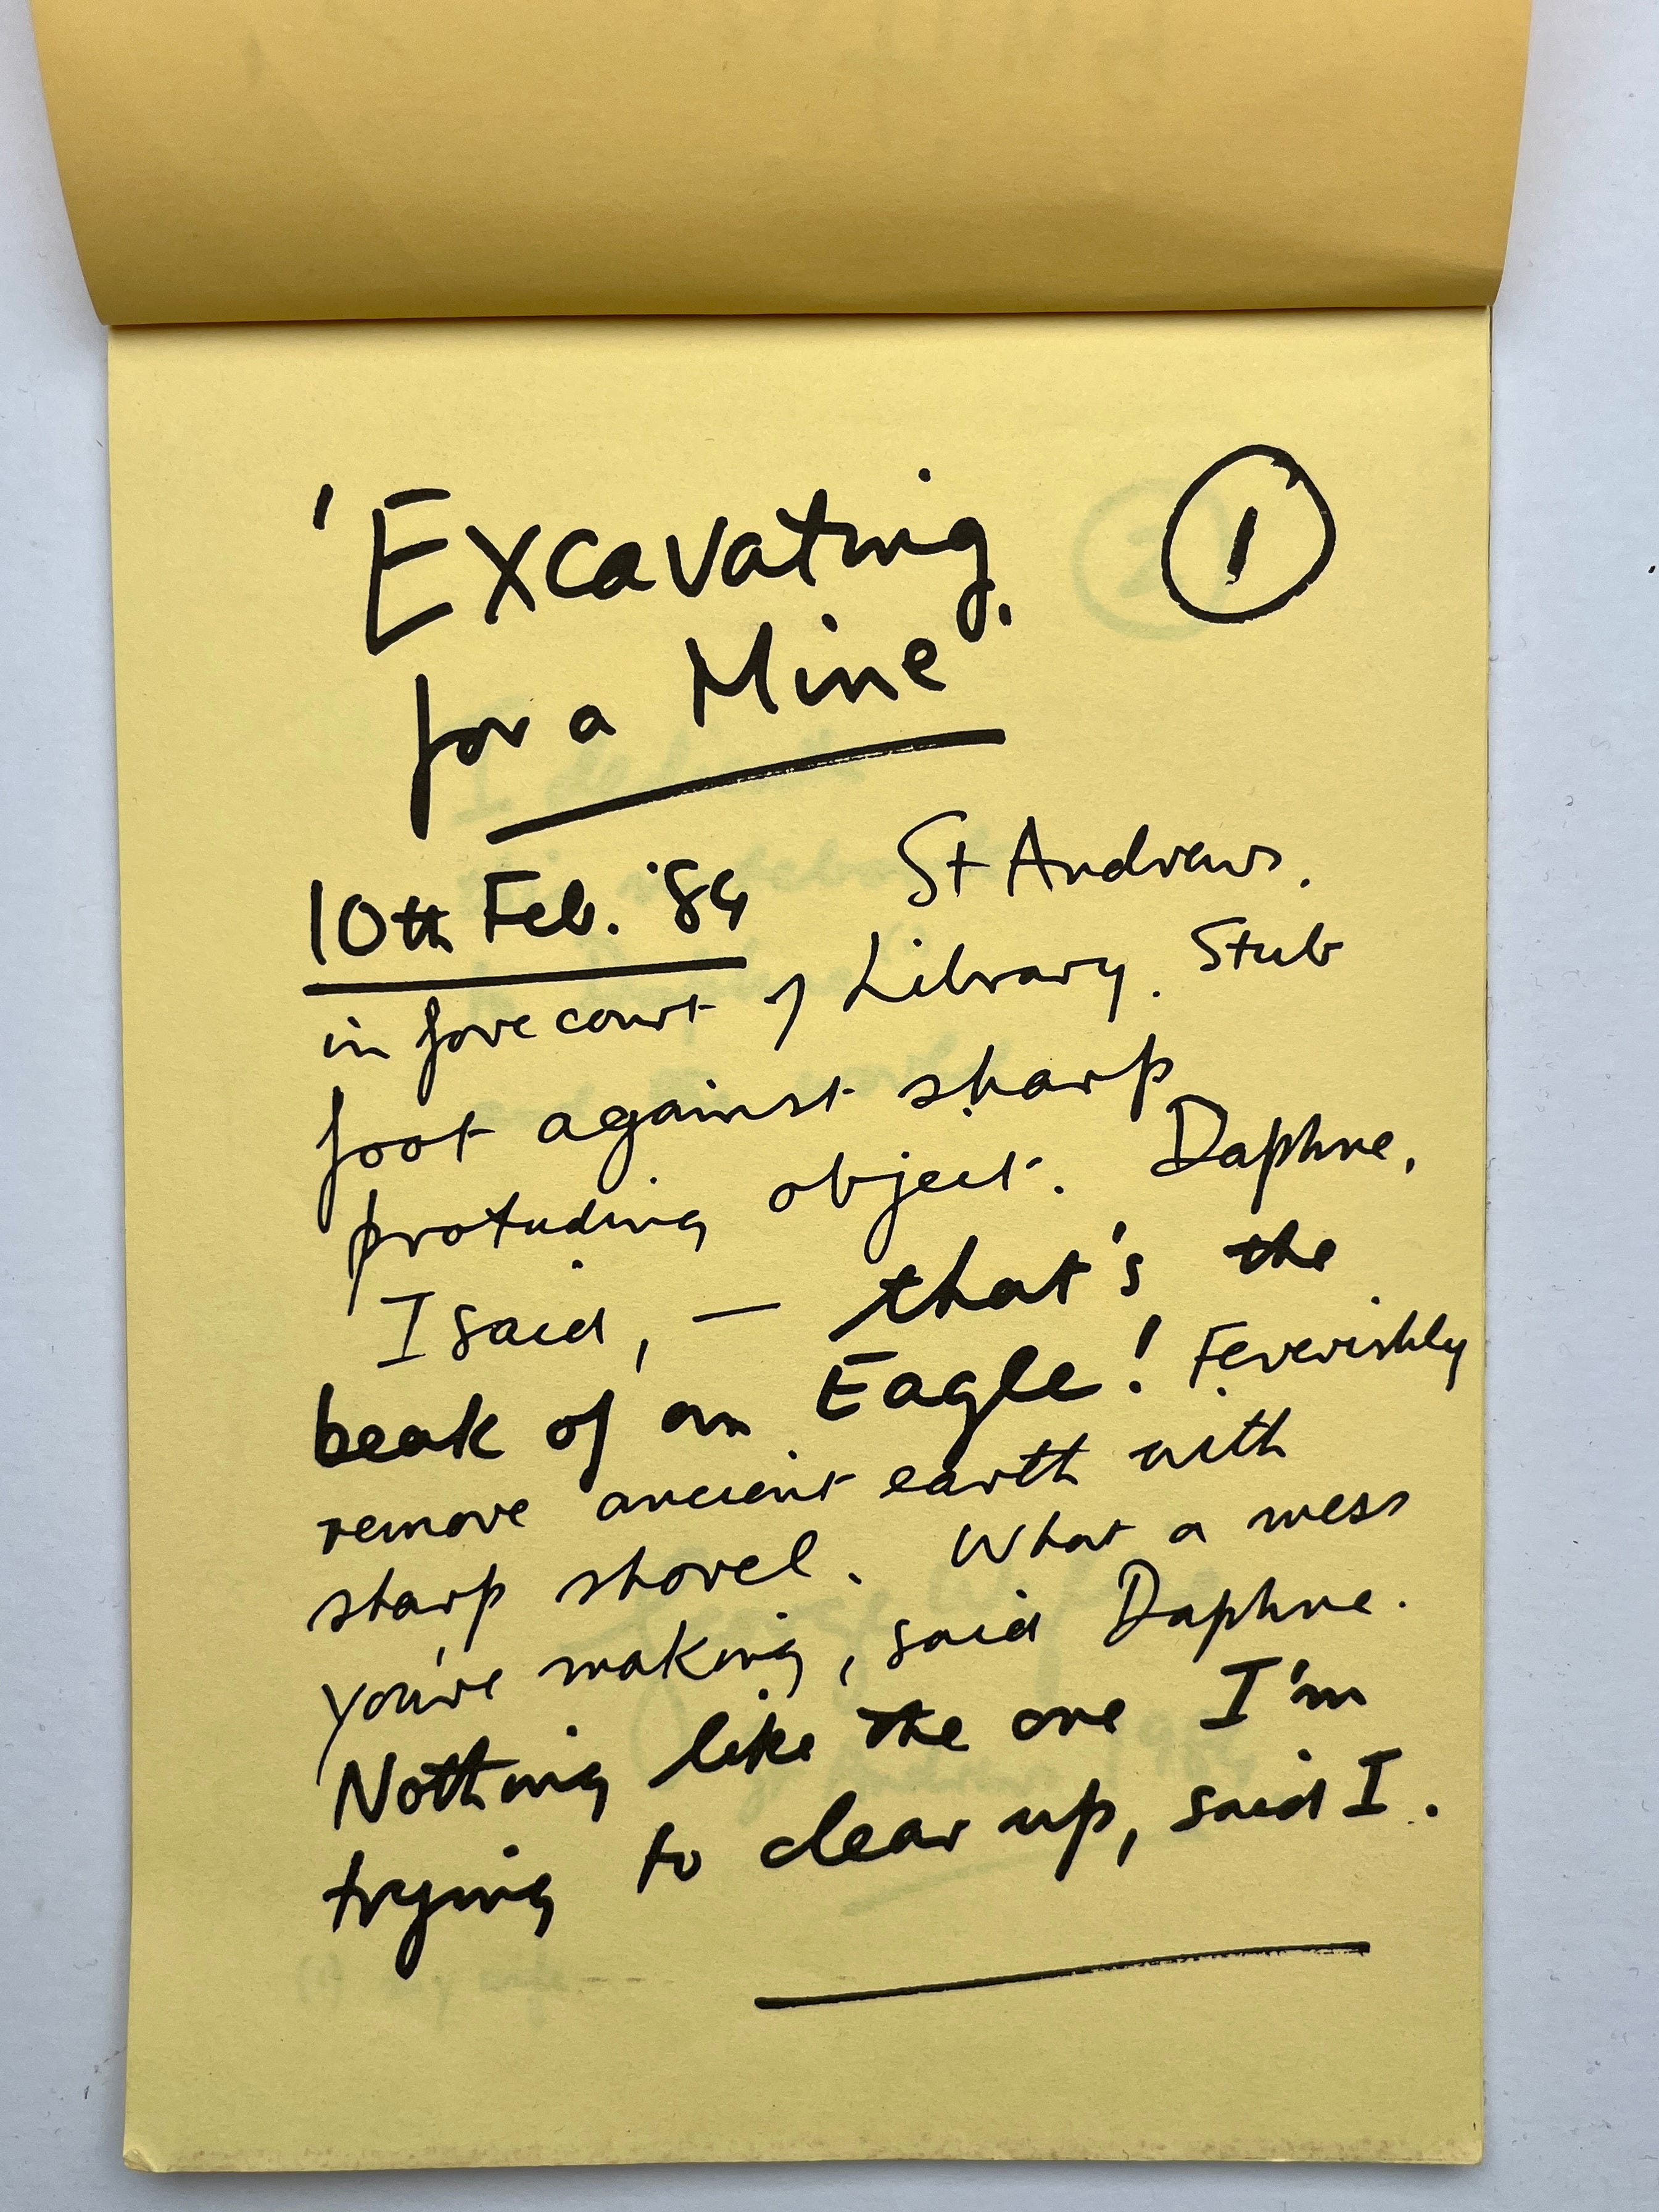 'Excavating ①
for a Mine'.
10th Feb. '84 St Andrews.
in forecourt of Library. Stub
foot against sharp
protuding object. Daphne,
I said, — that's the
beak of an Eagle! Feverishly
remove ancient earth with
sharp shovel. What a mess
you're making, said Daphne.
Nothing like the one I'm
trying to clear up, said I.